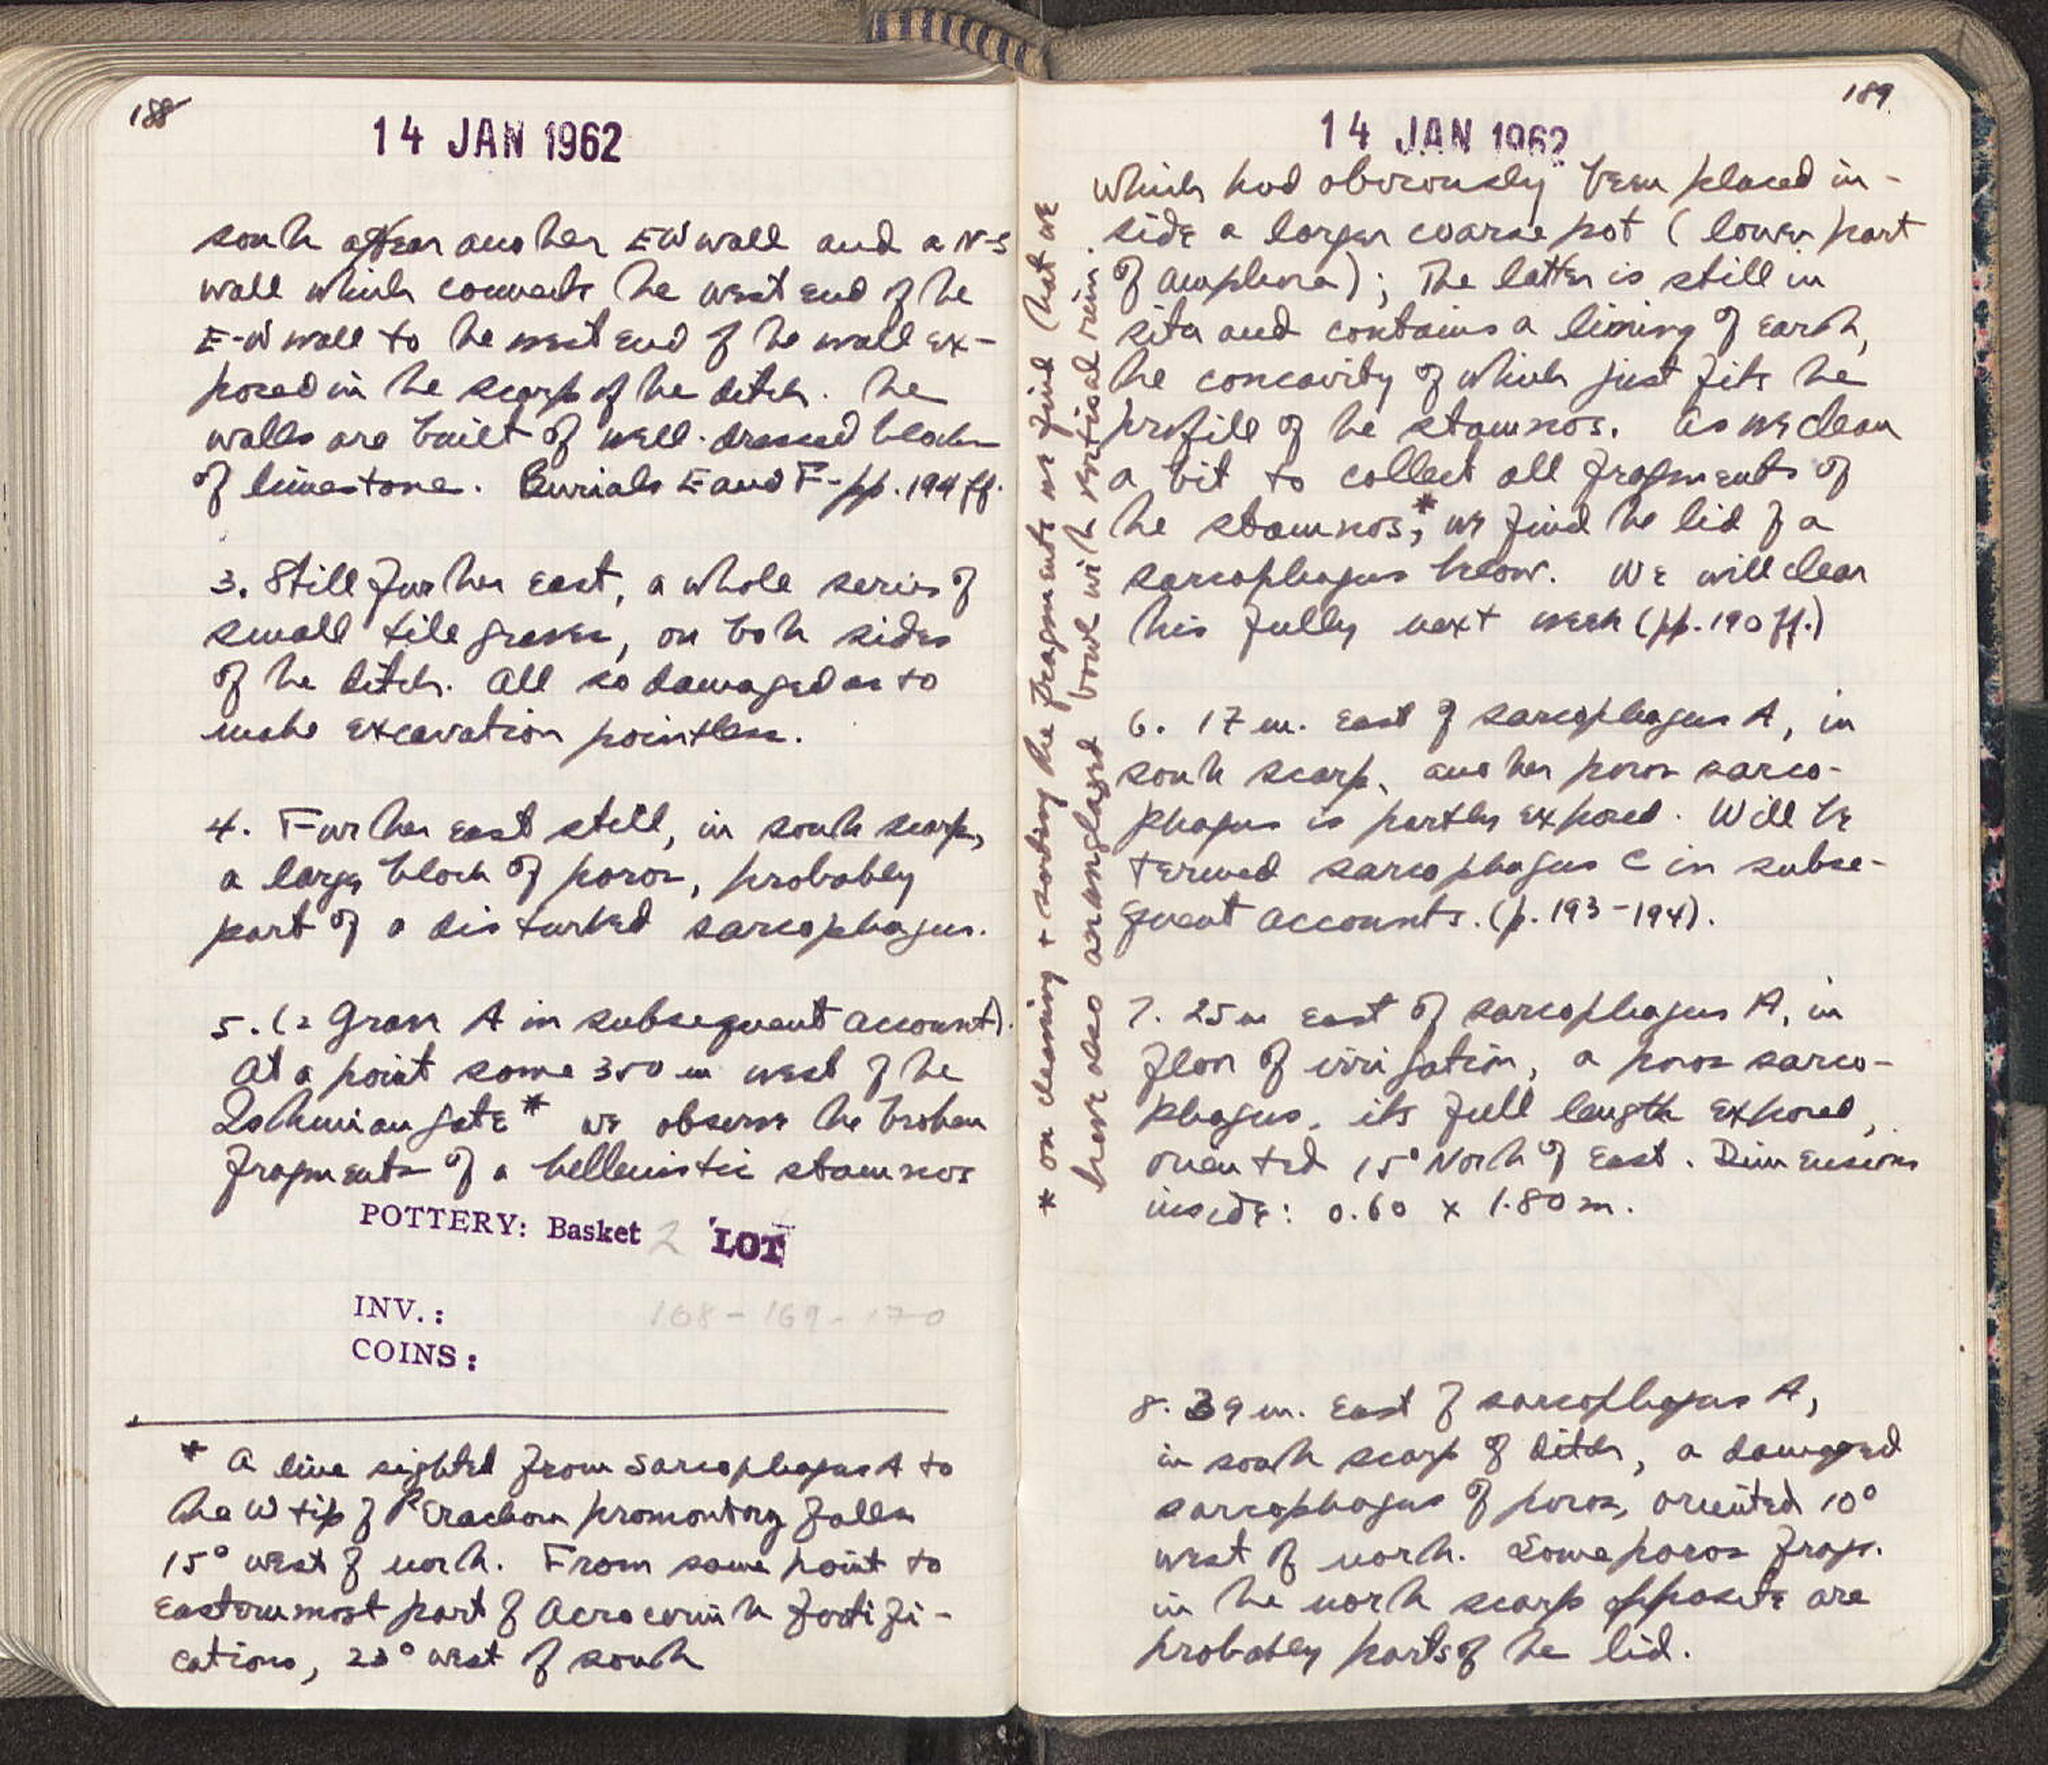 188
14 JAN 1962
south appear another E-W wall and a N-S
wall which connects the west end of the
E-W wall to the west end of the wall ex-
posed in the scarp of the ditch. The
walls are built of well-dressed blocks
of limestone. Burials E and F - pp. 194 ff.
3. Still further east, a whole series of
small tile graves, on both sides
of the ditch. All so damaged as to
make excavation pointless.
4. Further east still, in south scarp,
a large block of poros, probably
part of a disturbed sarcophagus.
5. (= Grave A in subsequent account).
At a point some 350 m west of the
Isthmian gate* we observe the broken
fragments of a hellenistic stamnos
POTTERY: Basket 2 LOT
INV.: 168 - 169 - 170
COINS:
* A line sighted from Sarcophagus A to
the W tip of Perachora promontory falls
15° west of north. From same point to
easternmost part of Acrocorinth fortifi-
cations, 23° west of south
189
14 JAN 1962
which had obviously been placed in-
side a larger coarse pot (lower part
of amphora); The latter is still in
situ and contains a lining of earth,
the concavity of which just fits the
profile of the stamnos. As we clean
a bit to collect all fragments of
the stamnos,* we find the lid of a
sarcophagus below. We will clear
this fully next week (pp. 190 ff.)
6. 17 m. east of sarcophagus A, in
south scarp, another poros sarco-
phagus is partly exposed. Will be
termed sarcophagus C in subse-
quent accounts. (p. 193-194).
7. 25 m east of sarcophagus A, in
floor of irrigation, a poros sarco-
phagus, its full length exposed,
oriented 15° North of East. Dimensions
inside: 0.60 x 1.80 m.
8. 39 m. east of sarcophagus A,
in south scarp of ditch, a damaged
sarcophagus of poros, oriented 10°
west of north. Some poros frags.
in the north scarp opposite are
probably parts of the lid.
* on cleaning + sorting the fragments we find that we
have also an unglazed bowl with vertical rim.